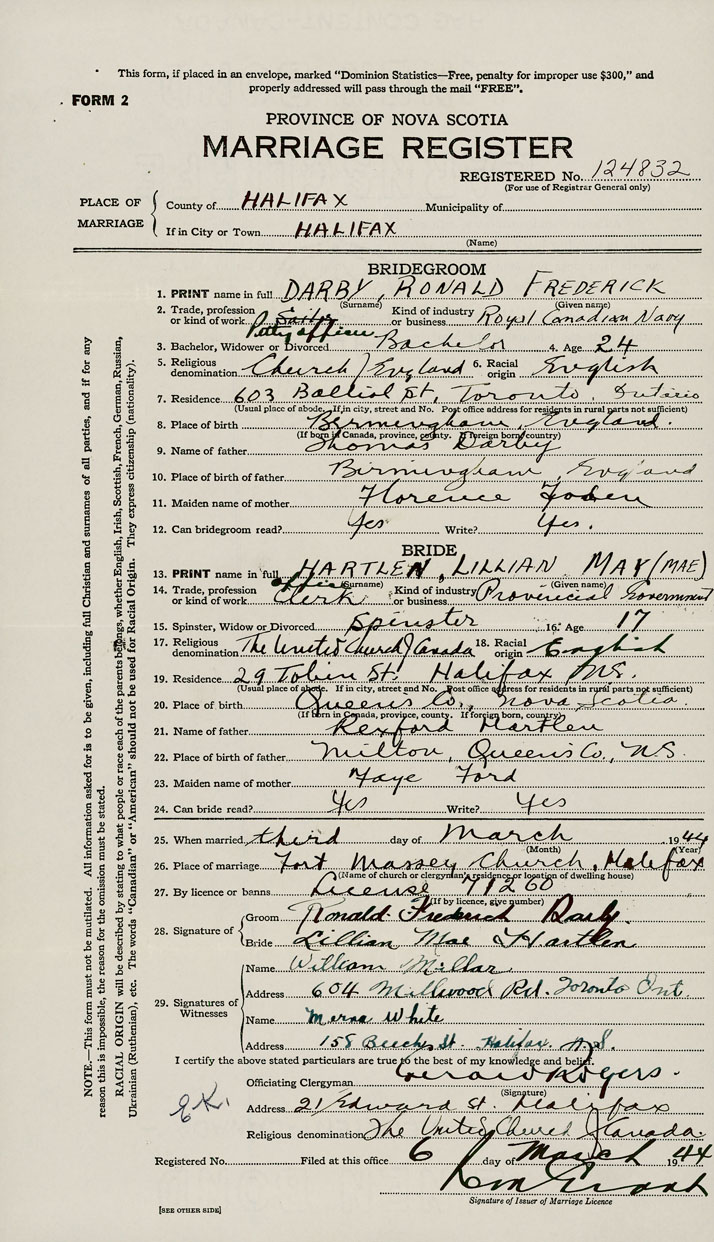 This form, if placed in an envelope, marked "Dominion Statistics—Free, penalty for improper use $300," and
properly addressed will pass through the mail "FREE".
FORM 2
PROVINCE OF NOVA SCOTIA
MARRIAGE REGISTER
REGISTERED No. 124832
(For use of Registrar General only)
PLACE OF MARRIAGE
County of HALIFAX Municipality of
If in City or Town HALIFAX
(Name)
BRIDEGROOM
1. PRINT name in full DARBY, RONALD FREDERICK
(Surname) (Given name)
2. Trade, profession or kind of work Sailor Petty officer Kind of industry or business Royal Canadian Navy
3. Bachelor, Widower or Divorced Bachelor 4. Age 24
5. Religious denomination Church of England 6. Racial origin English
7. Residence 603 Balliol St, Toronto, Ontario
(Usual place of abode. If in city, street and No. Post office address for residents in rural parts not sufficient)
8. Place of birth Birmingham, England.
(If born in Canada, province, county. If foreign born, country)
9. Name of father Thomas Darby
10. Place of birth of father Birmingham, England
11. Maiden name of mother Florence
12. Can bridegroom read? Yes Write? Yes.
BRIDE
13. PRINT name in full HARTLEN, LILLIAN MAY (MAE)
(Surname) (Given name)
14. Trade, profession or kind of work office Clerk Kind of industry or business Provincial Government
15. Spinster, Widow or Divorced Spinster 16. Age 17
17. Religious denomination The United Church of Canada 18. Racial origin English
19. Residence 29 Tobin St. Halifax N.S.
(Usual place of abode. If in city, street and No. Post office address for residents in rural parts not sufficient)
20. Place of birth Queens Co., Nova Scotia.
(If born in Canada, province, county. If foreign born, country)
21. Name of father Rexford Hartlen
22. Place of birth of father Milton, Queens Co., N.S.
23. Maiden name of mother Faye Ford
24. Can bride read? Yes Write? Yes
25. When married third day of March 1944
(Month) (Year)
26. Place of marriage Fort Massey Church, Halifax
(Name of church or clergyman's residence or location of dwelling house)
27. By licence or banns License 71260
(If by licence, give number)
28. Signature of
Groom Ronald Frederick Darby.
Bride Lillian Mae Hartlen
29. Signatures of Witnesses
Name William Millar
Address 604 Millwood Rd. Toronto Ont.
Name Merna White
Address 158 Beech St. Halifax. N.S.
I certify the above stated particulars are true to the best of my knowledge and belief.
Officiating Clergyman Gerald Rogers.
(Signature)
E.K.
Address 21 Edward St. Halifax
Religious denomination The United Church of Canada.
Registered No. Filed at this office 6 day of March 1944
Signature of Issuer of Marriage Licence
[SEE OTHER SIDE]
NOTE.—This form must not be mutilated. All information asked for is to be given, including full Christian and surnames of all parties, and if for any
reason this is impossible, the reason for the omission must be stated.
RACIAL ORIGIN will be described by stating to what people or race each of the parents belongs, whether English, Irish, Scottish, French, German, Russian,
Ukrainian (Ruthenian), etc. The words "Canadian" or "American" should not be used for Racial Origin. They express citizenship (nationality).